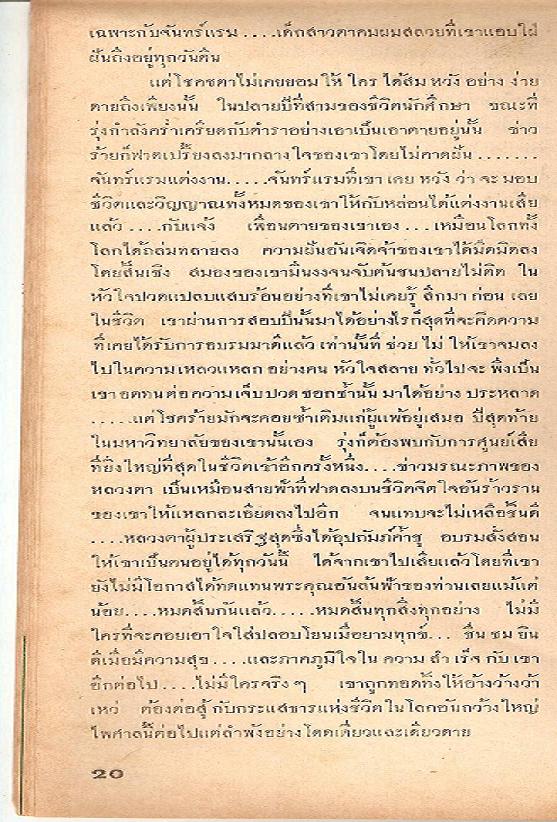 เฉพาะกับจันทร์แรม ....เด็กสาวตาคมผมสลวยที่เขาแอบใฝ่
ฝันถึงอยู่ทุกวันคืน
แต่โชคชตาไม่เคยยอมให้ ใคร ได้สม หวัง อย่าง ง่าย
ดายถึงเพียงนั้น ในปลายปีที่สามของชีวิตนักศึกษา ขณะที่
รุ่งกำลังคร่ำเครียดกับตำราอย่างเอาเป็นเอาตายอยู่นั้น ข่าว
ร้ายก็ฟาดเปรี้ยงลงมากลางใจของเขาโดยไม่คาดฝัน.......
จันทร์แรมแต่งงาน.....จันทร์แรมที่เขา เคย หวัง ว่า จะ มอบ
ชีวิตและวิญญาณทั้งหมดของเขาให้กับหล่อนได้แต่งงานเสีย
แล้ว ....กับแจ้ง เพื่อนตายของเขาเอง...เหมือนโลกทั้ง
โลกได้ถล่มทลายลง ความฝันอันเจิดจ้าของเขาได้มืดมิดลง
โดยสิ้นเชิง สมองของเขามึนงงจนจับต้นชนปลายไม่ติด ใน
หัวใจปวดแปลบแสบร้อนอย่างที่เขาไม่เคยรู้ สึกมา ก่อน เลย
ในชีวิต เขาผ่านการสอบปีนั้นมาได้อย่างไรก็สุดที่จะคิดความ
ที่เคยได้รับการอบรมมาดีแล้ว เท่านั้นที่ ช่วย ไม่ ให้เขาจมลง
ไปในความเหลวแหลก อย่างคน หัวใจสลาย ทั่วไปจะ พึงเป็น
เขา อดทนต่อ ความ เจ็บปวด ชอกช้ำนั้น มาได้อย่าง ประหลาด
.....แต่โชคร้ายมักจะคอยซ้ำเติมแก่ผู้แพ้อยู่เสมอ ปีสุดท้าย
ในมหาวิทยาลัยของเขานั้นเอง รุ่งก็ต้องพบกับการศูนย์เสีย
ที่ยิ่งใหญ่ที่สุดในชีวิตเข้าอีกครั้งหนึ่ง....ข่าวมรณะภาพของ
หลวงตา เป็นเหมือนสายฟ้าที่ฟาดลงบนชีวิตจิตใจอันร้าวราน
ของเขาให้แหลกละเอียดลงไปอีก จนแทบจะไม่เหลือชิ้นดี
....หลวงตาผู้ประเสริฐสุดซึ่งได้อุปถัมภ์ค้ำชู อบรมสั่งสอน
ให้เขาเป็นคนอยู่ได้ทุกวันนี้ ได้จากเขาไปเสียแล้วโดยที่เขา
ยังไม่มีโอกาสได้ทดแทนพระคุณอันล้นฟ้าของท่านเลยแม้แต่
น้อย....หมดสิ้นกันแล้ว.....หมดสิ้นทุกสิ่งทุกอย่าง ไม่มี
ใครที่จะคอยเอาใจใส่ปลอบโยนเมื่อยามทุกข์... ชื่น ชม ยิน
ดีเมื่อมีความสุข ....และภาคภูมิใจใน ความ สำ เร็จ กับ เขา
อีกต่อไป ....ไม่มีใครจริงๆ เขาถูกทอดทิ้งให้อ้างว้างว้า
เหว่ ต้องต่อสู้ กับกระแสธารแห่งชีวิต ในโลกอันกว้างใหญ่
ไพศาลนี้ต่อไปแต่ลำพังอย่างโดดเดี่ยวและเดียวดาย
20